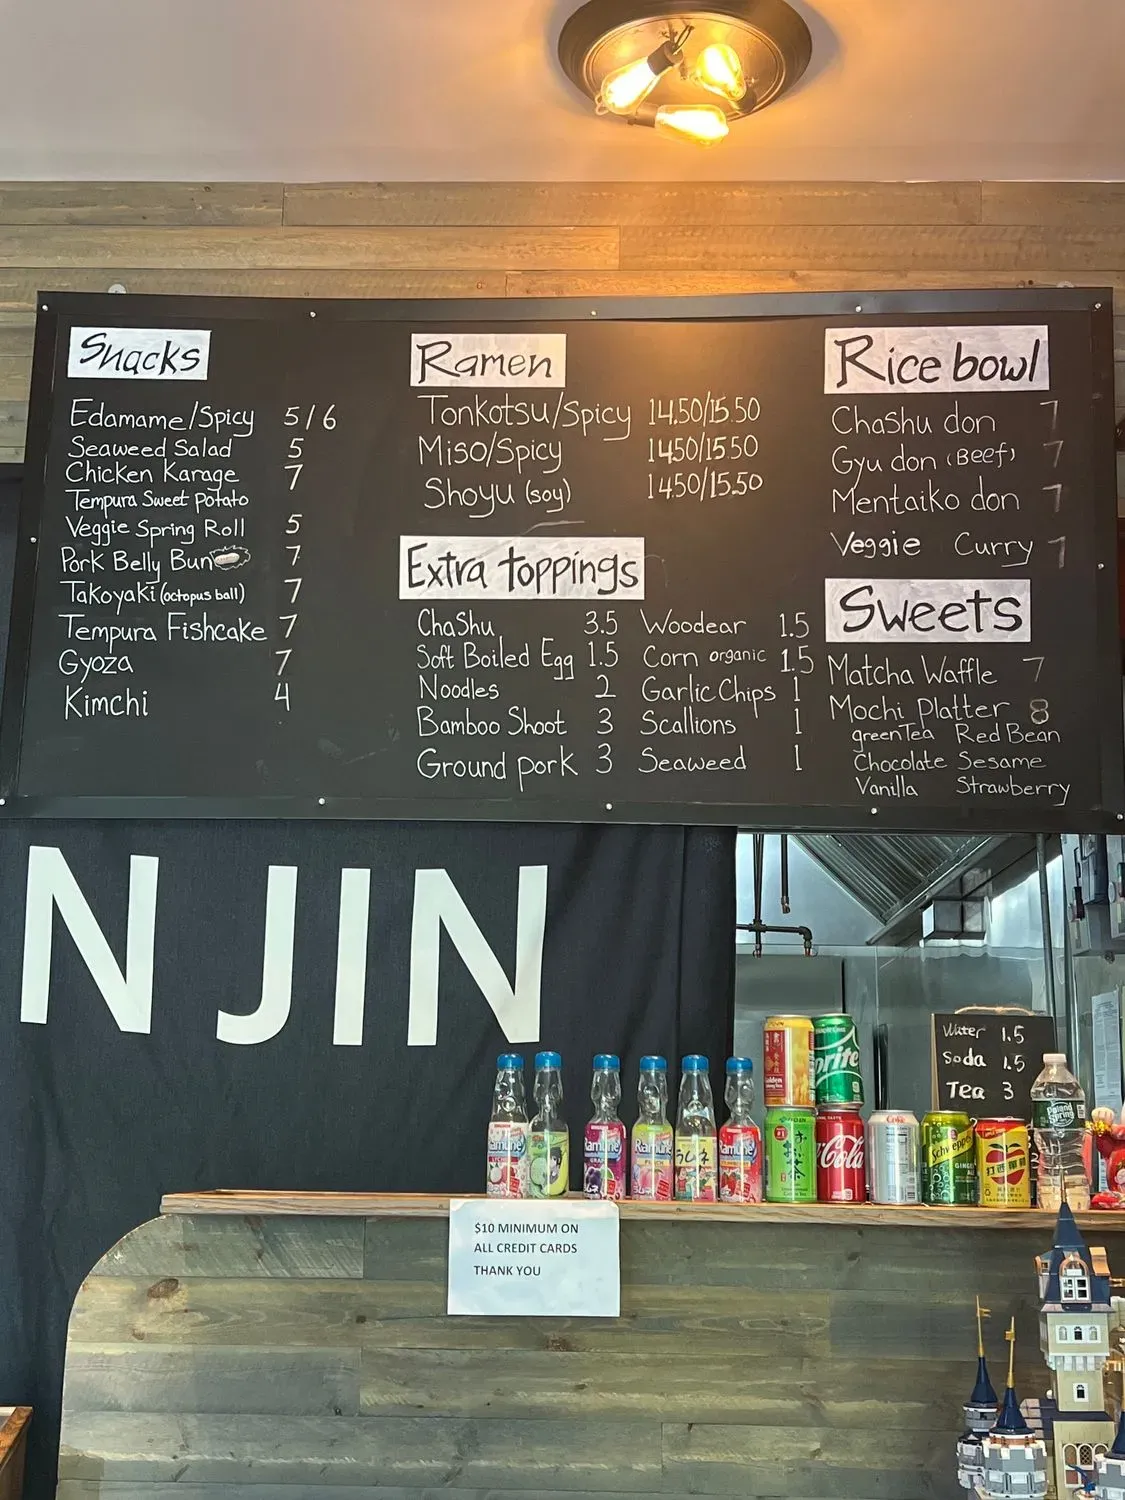 Snacks
Edamame/Spicy 5/6
Seaweed Salad 5
Chicken Karage 7
Tempura Sweet Potato
Veggie Spring Roll 5
Pork Belly Bun 7
Takoyaki (octopus ball) 7
Tempura Fishcake 7
Gyoza 7
Kimchi 4
Ramen
Tonkotsu/Spicy 14.50/15.50
Miso/Spicy 14.50/15.50
Shoyu (soy) 14.50/15.50
Extra toppings
ChaShu 3.5 Woodear 1.5
Soft Boiled Egg 1.5 Corn organic 1.5
Noodles 2 Garlic Chips 1
Bamboo Shoot 3 Scallions 1
Ground pork 3 Seaweed 1
Rice bowl
ChaShu don 7
Gyu don (Beef) 7
Mentaiko don 7
Veggie Curry 7
Sweets
Matcha Waffle 7
Mochi Platter 8
greenTea Red Bean
Chocolate Sesame
Vanilla Strawberry
N JIN
Water 1.5
Soda 1.5
Tea 3
Ramune
Ramune
Ramune
ラムネ
Ramune
Sprite
お〜いお茶
Coca-Cola
Coke
Schweppes
Poland Spring
$10 MINIMUM ON
ALL CREDIT CARDS
THANK YOU